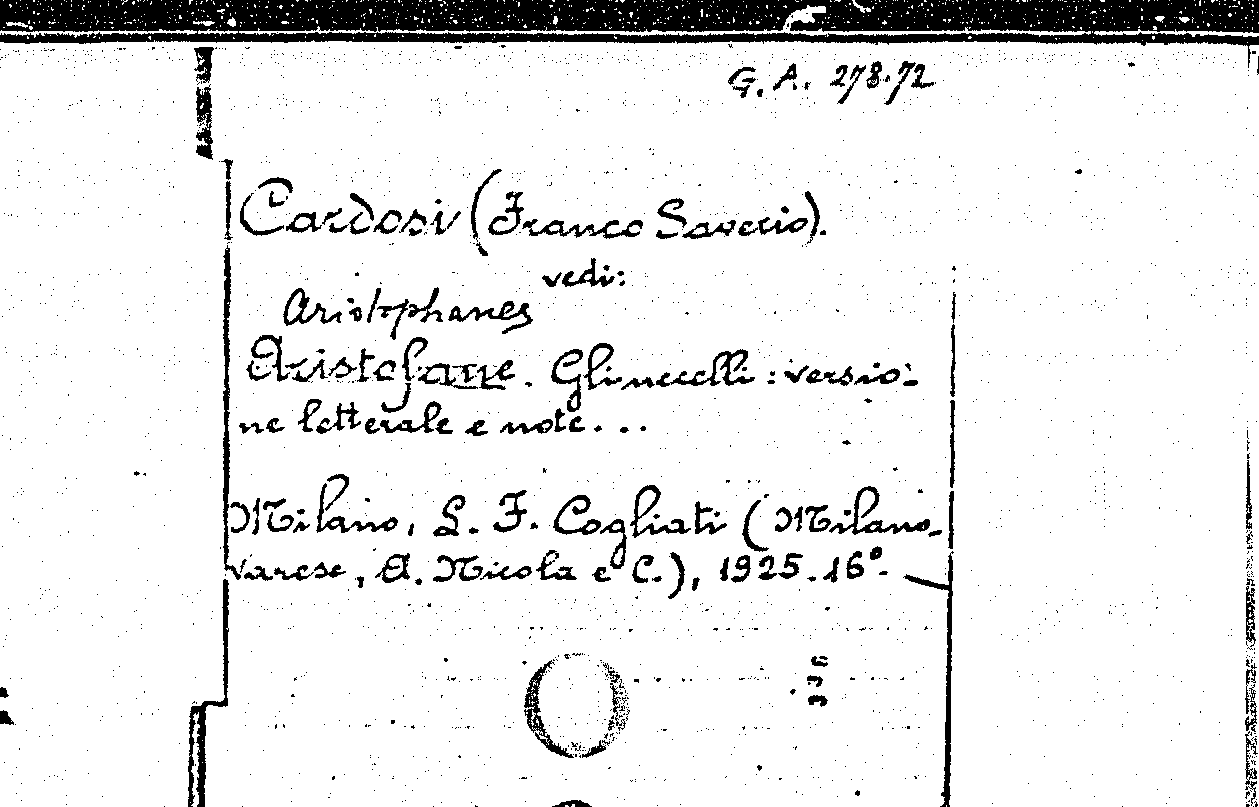 G. A. 278.72
Cardosi (Franco Saverio).
vedi:
Aristophanes
Aristofane. Gli uccelli : versio-
ne letterale e note...
Milano, L. F. Cogliati (Milano-
Varese, A. Nicola e C.), 1925. 16°.